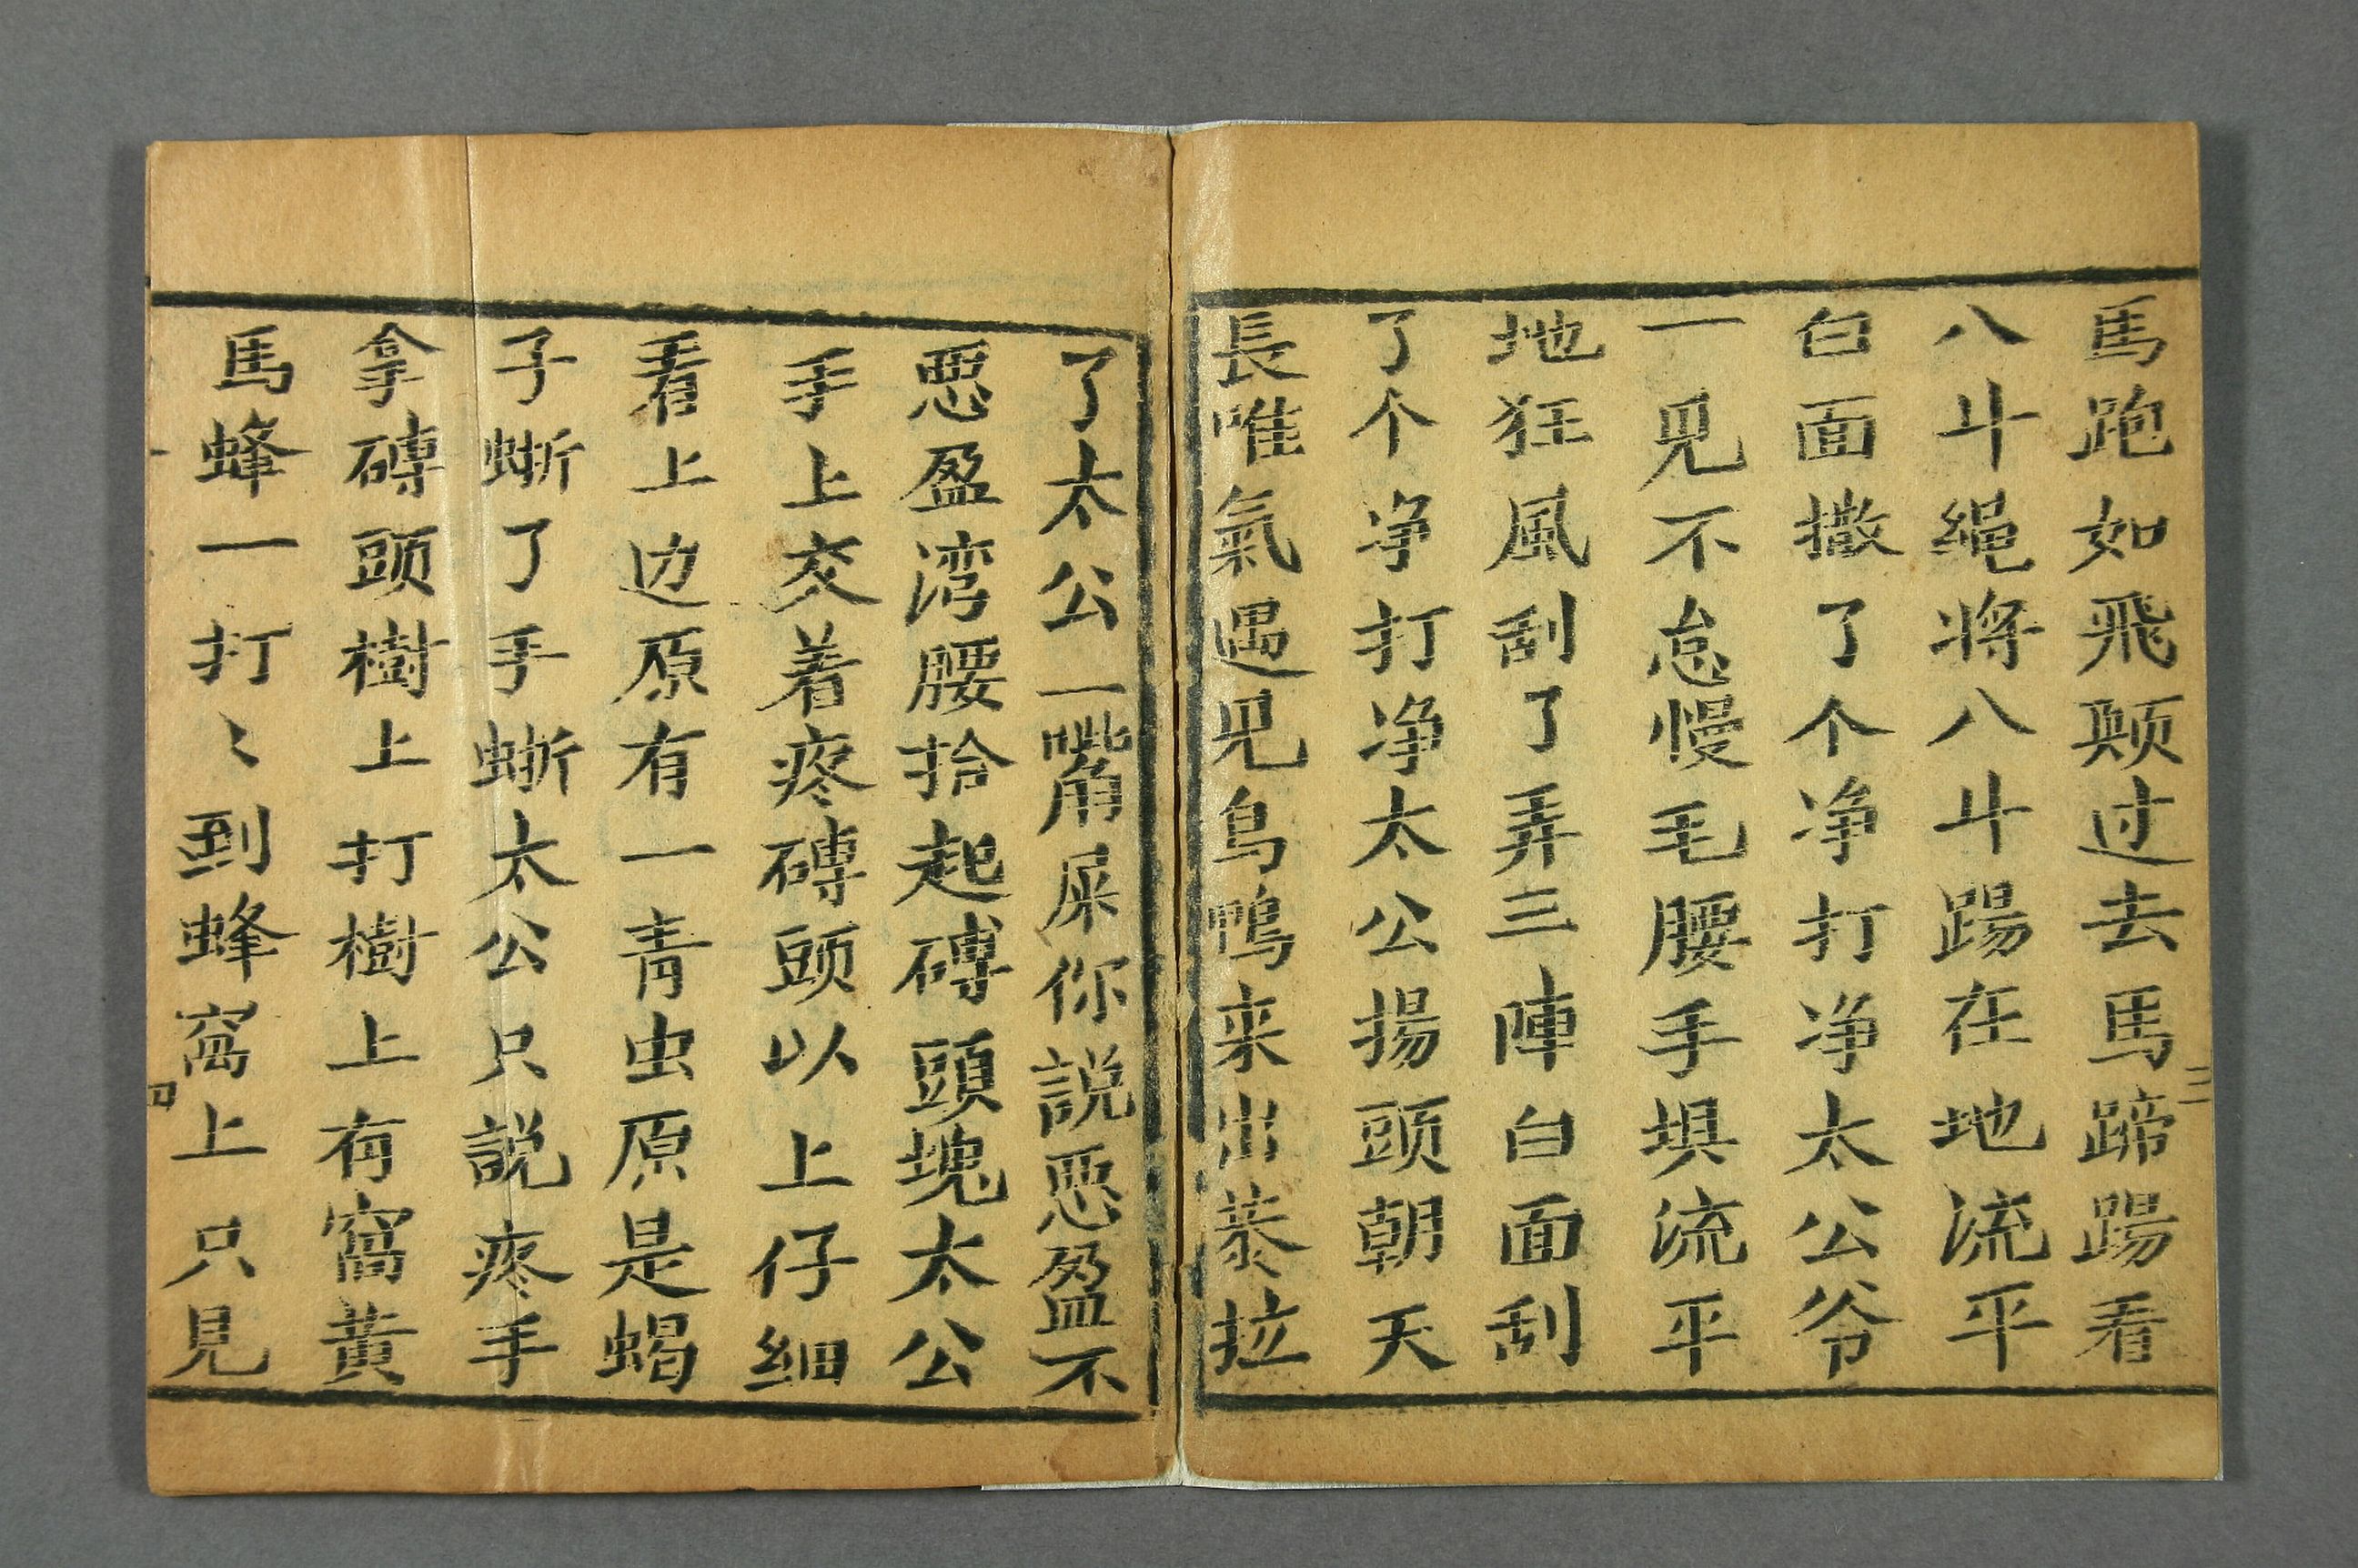 馬跑如飛颠过去馬蹄踢看
八斗绳将八斗踢在地流平
白面撒了个净打净太公爷
一见不怠慢毛腰手埧流平
地狂風刮了弄三陣白面刮
了个净打净太公揚頭朝天
長唯氣遇见烏鴨来出恭拉
了太公一嘴屎你説恶盈不
恶盈湾腰拾起磚頭塊太公
手上交着疼磚頭以上仔细
看上边原有一青虫原是蝎
子蜥了手蜥太公只説疼手
拿磚頭樹上打樹上有窩黄
馬蜂一打〻到蜂窩上只見
三
四